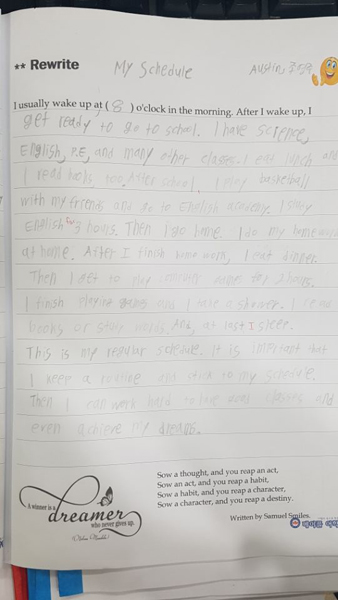 ★★ Rewrite
My Schedule
Austin, 3:59
I usually wake up at ( 8 ) o'clock in the morning. After I wake up, I
get ready to go to school. I have science,
English, P.E, and many other classes. I eat lunch and
I read books, too. After school, I play basketball
with my friends and go to English academy. I study
English 3 hours. Then I go home. I do my homework
at home. After I finish home work, I eat dinner.
Then I get to play computer games for 2 hours.
I finish playing games and I have a shower. I read
books or study words. And, at last I sleep.
This is my regular schedule. It is important that
I keep a routine and stick to my schedule.
Then I can work hard to have good classes and
even achieve my dreams.
A winner is a
dreamer
who never gives up.
Nelson Mandela
Sow a thought, and you reap an act,
Sow an act, and you reap a habit,
Sow a habit, and you reap a character,
Sow a character, and you reap a destiny.
Written by Samuel Smiles.